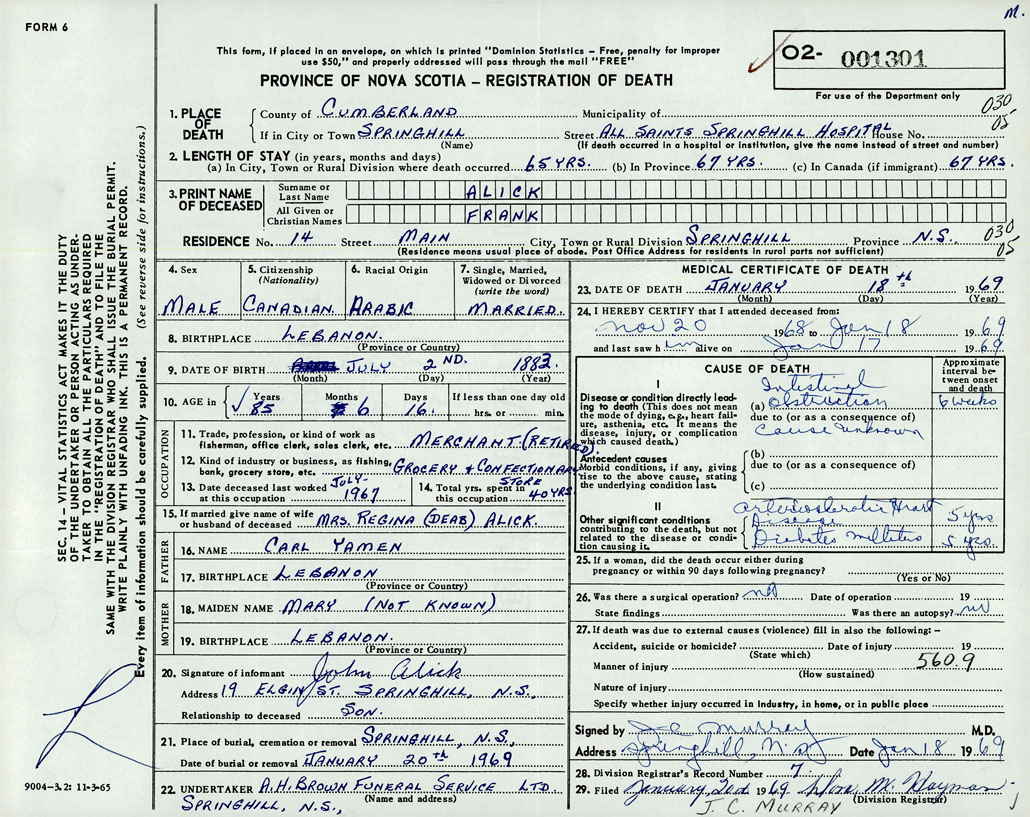 M.
FORM 6
This form, if placed in an envelope, on which is printed "Dominion Statistics – Free, penalty for improper
use $50," and properly addressed will pass through the mail "FREE"
PROVINCE OF NOVA SCOTIA – REGISTRATION OF DEATH
02- 001301
For use of the Department only
030
05
1. PLACE OF DEATH
County of CUMBERLAND Municipality of
If in City or Town SPRINGHILL Street ALL SAINTS SPRINGHILL HOSPITAL House No.
(Name) (If death occurred in a hospital or institution, give the name instead of street and number)
2. LENGTH OF STAY (in years, months and days)
(a) In City, Town or Rural Division where death occurred 65 YRS. (b) In Province 67 YRS. (c) In Canada (if immigrant) 67 YRS.
3. PRINT NAME OF DECEASED
Surname or Last Name ALICK
All Given or Christian Names FRANK
RESIDENCE No. 14 Street MAIN City, Town or Rural Division SPRINGHILL Province N.S. 030
05
(Residence means usual place of abode. Post Office Address for residents in rural parts not sufficient)
4. Sex
MALE
5. Citizenship
(Nationality)
CANADIAN
6. Racial Origin
ARABIC
7. Single, Married,
Widowed or Divorced
(write the word)
MARRIED.
8. BIRTHPLACE LEBANON.
(Province or Country)
9. DATE OF BIRTH JULY 2 ND. 1883.
(Month) (Day) (Year)
10. AGE in Years Months Days If less than one day old
85 6 16. hrs. or min.
OCCUPATION
11. Trade, profession, or kind of work as
fisherman, office clerk, sales clerk, etc. MERCHANT (RETIRED).
12. Kind of industry or business, as fishing,
bank, grocery store, etc. GROCERY & CONFECTIONARY STORE
13. Date deceased last worked
at this occupation JULY- 1967
14. Total yrs. spent in
this occupation 40 YRS.
15. If married give name of wife
or husband of deceased MRS. REGINA (DEAB) ALICK.
FATHER
16. NAME CARL YAMEN
17. BIRTHPLACE LEBANON
(Province or Country)
MOTHER
18. MAIDEN NAME MARY (NOT KNOWN)
19. BIRTHPLACE LEBANON.
(Province or Country)
20. Signature of informant John Alick
Address 19 ELGIN ST. SPRINGHILL, N.S.,
Relationship to deceased SON.
21. Place of burial, cremation or removal SPRINGHILL, N.S.,
Date of burial or removal JANUARY 20th 1969
22. UNDERTAKER A.H. BROWN FUNERAL SERVICE LTD.
(Name and address)
SPRINGHILL, N.S.,
MEDICAL CERTIFICATE OF DEATH
23. DATE OF DEATH JANUARY 18th 1969
(Month) (Day) (Year)
24. I HEREBY CERTIFY that I attended deceased from:
Nov 20 1968 to Jan 18 1969
and last saw him alive on Jan 17 1969
CAUSE OF DEATH
Approximate
interval be-
tween onset
and death
I
Disease or condition directly lead-
ing to death (This does not mean
the mode of dying, e.g., heart fail-
ure, asthenia, etc. It means the
disease, injury, or complication
which caused death.)
Intestinal
(a) obstruction 6 weeks
due to (or as a consequence of)
Cause unknown
Antecedent causes
Morbid conditions, if any, giving
rise to the above cause, stating
the underlying condition last.
(b)
due to (or as a consequence of)
(c)
II
Other significant conditions
contributing to the death, but not
related to the disease or condi-
tion causing it.
arteriosclerotic Heart
Disease 5 yrs
Diabetes mellitis 5 yrs.
25. If a woman, did the death occur either during
pregnancy or within 90 days following pregnancy?
(Yes or No)
26. Was there a surgical operation? no Date of operation 19
State findings Was there an autopsy? no
27. If death was due to external causes (violence) fill in also the following: –
Accident, suicide or homicide? Date of injury 19
(State which)
560.9
Manner of injury
(How sustained)
Nature of injury
Specify whether injury occurred in Industry, in home, or in public place
Signed by J C Murray M.D.
Address Springhill, N.S. Date Jan 18 1969
28. Division Registrar's Record Number 7
29. Filed January 1969
(Division Registrar)
J. C. MURRAY
SEC. 14 – VITAL STATISTICS ACT MAKES IT THE DUTY
OF THE UNDERTAKER OR PERSON ACTING AS UNDER-
TAKER TO OBTAIN ALL THE PARTICULARS REQUIRED
IN THE "REGISTRATION OF DEATH" AND TO FILE THE
SAME WITH THE DIVISION REGISTRAR WHO SHALL ISSUE THE BURIAL PERMIT.
WRITE PLAINLY WITH UNFADING INK. THIS IS A PERMANENT RECORD.
Every item of information should be carefully supplied. (See reverse side for instructions.)
9004-3.2: 11-3-65